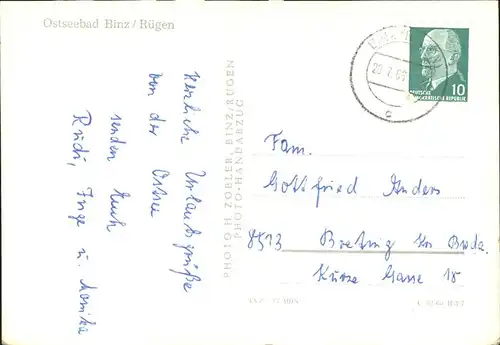 Ostseebad Binz/Rügen
Herzliche Urlaubsgrüße
von der Ostsee
senden Euch
Rudi, Inge u. Monika
PHOTO H. ZOBLER, BINZ/RÜGEN
PHOTO-HANDABZUG
DEUTSCHE
DEMOKRATISCHE REPUBLIK
10
Fam.
Gottfried Anders
8513 Bretnig Kr. Bisda.
Kurze Gasse 18